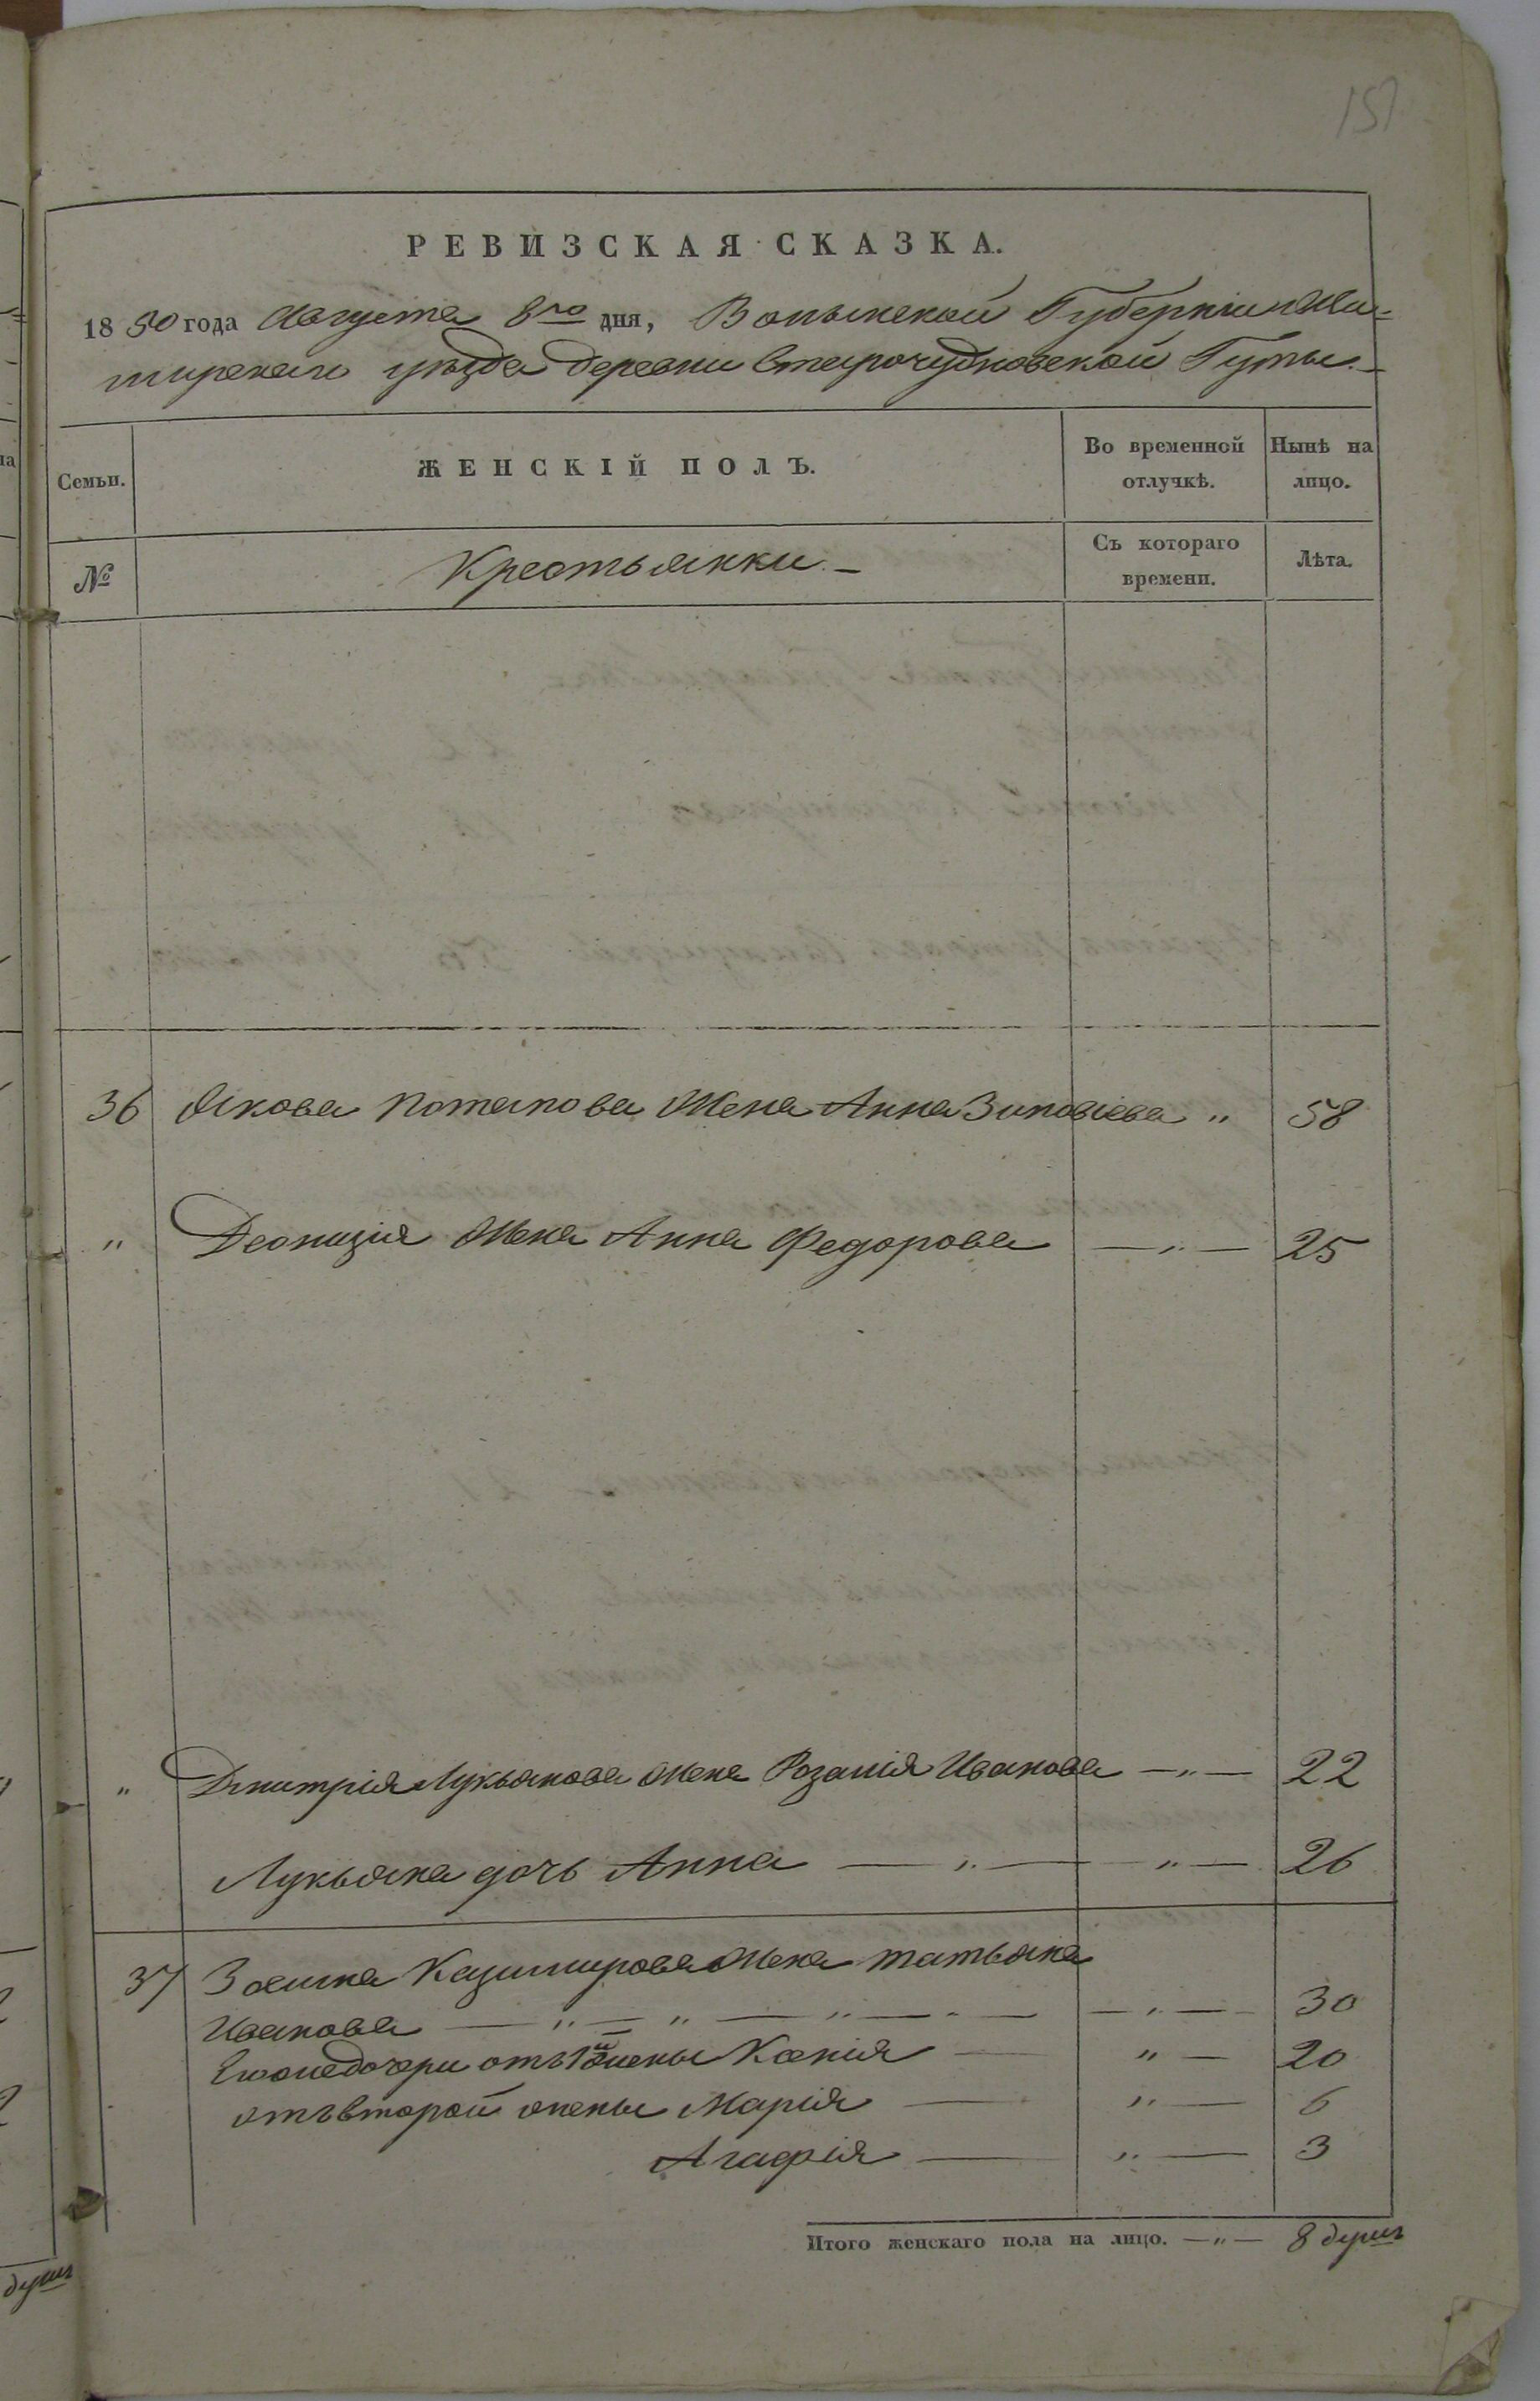 151
РЕВИЗСКАЯ СКАЗКА.
1850 года Августа 8го дня, Волынской Губерніи Жи-
тирскаго уѣзда деревни Старочудновской Гуты.
Семьи.
ЖЕНСКІЙ ПОЛЪ.
Во временной отлучкѣ.
Нынѣ на лицо.
№
Крестьянки.
Съ котораго времени.
Лѣта.
36 Якова Потапова жена Анна Зиновіева " 58
" Деонизія жена Анна Федорова — " — 25
" Дмитрія Лукьянова жена Розалія Иванова — " — 22
Лукьяна дочь Анна — " — " — 26
37 Казимирова жена Татьяна
Иванова — " — " — " — " — — " — 30
дочери отъ 1й жены Ксенія — " — 20
отъ второй жены Марія — " — 6
Агафія — " — 3
Итого женскаго пола на лицо. — " — 8 душъ
душъ